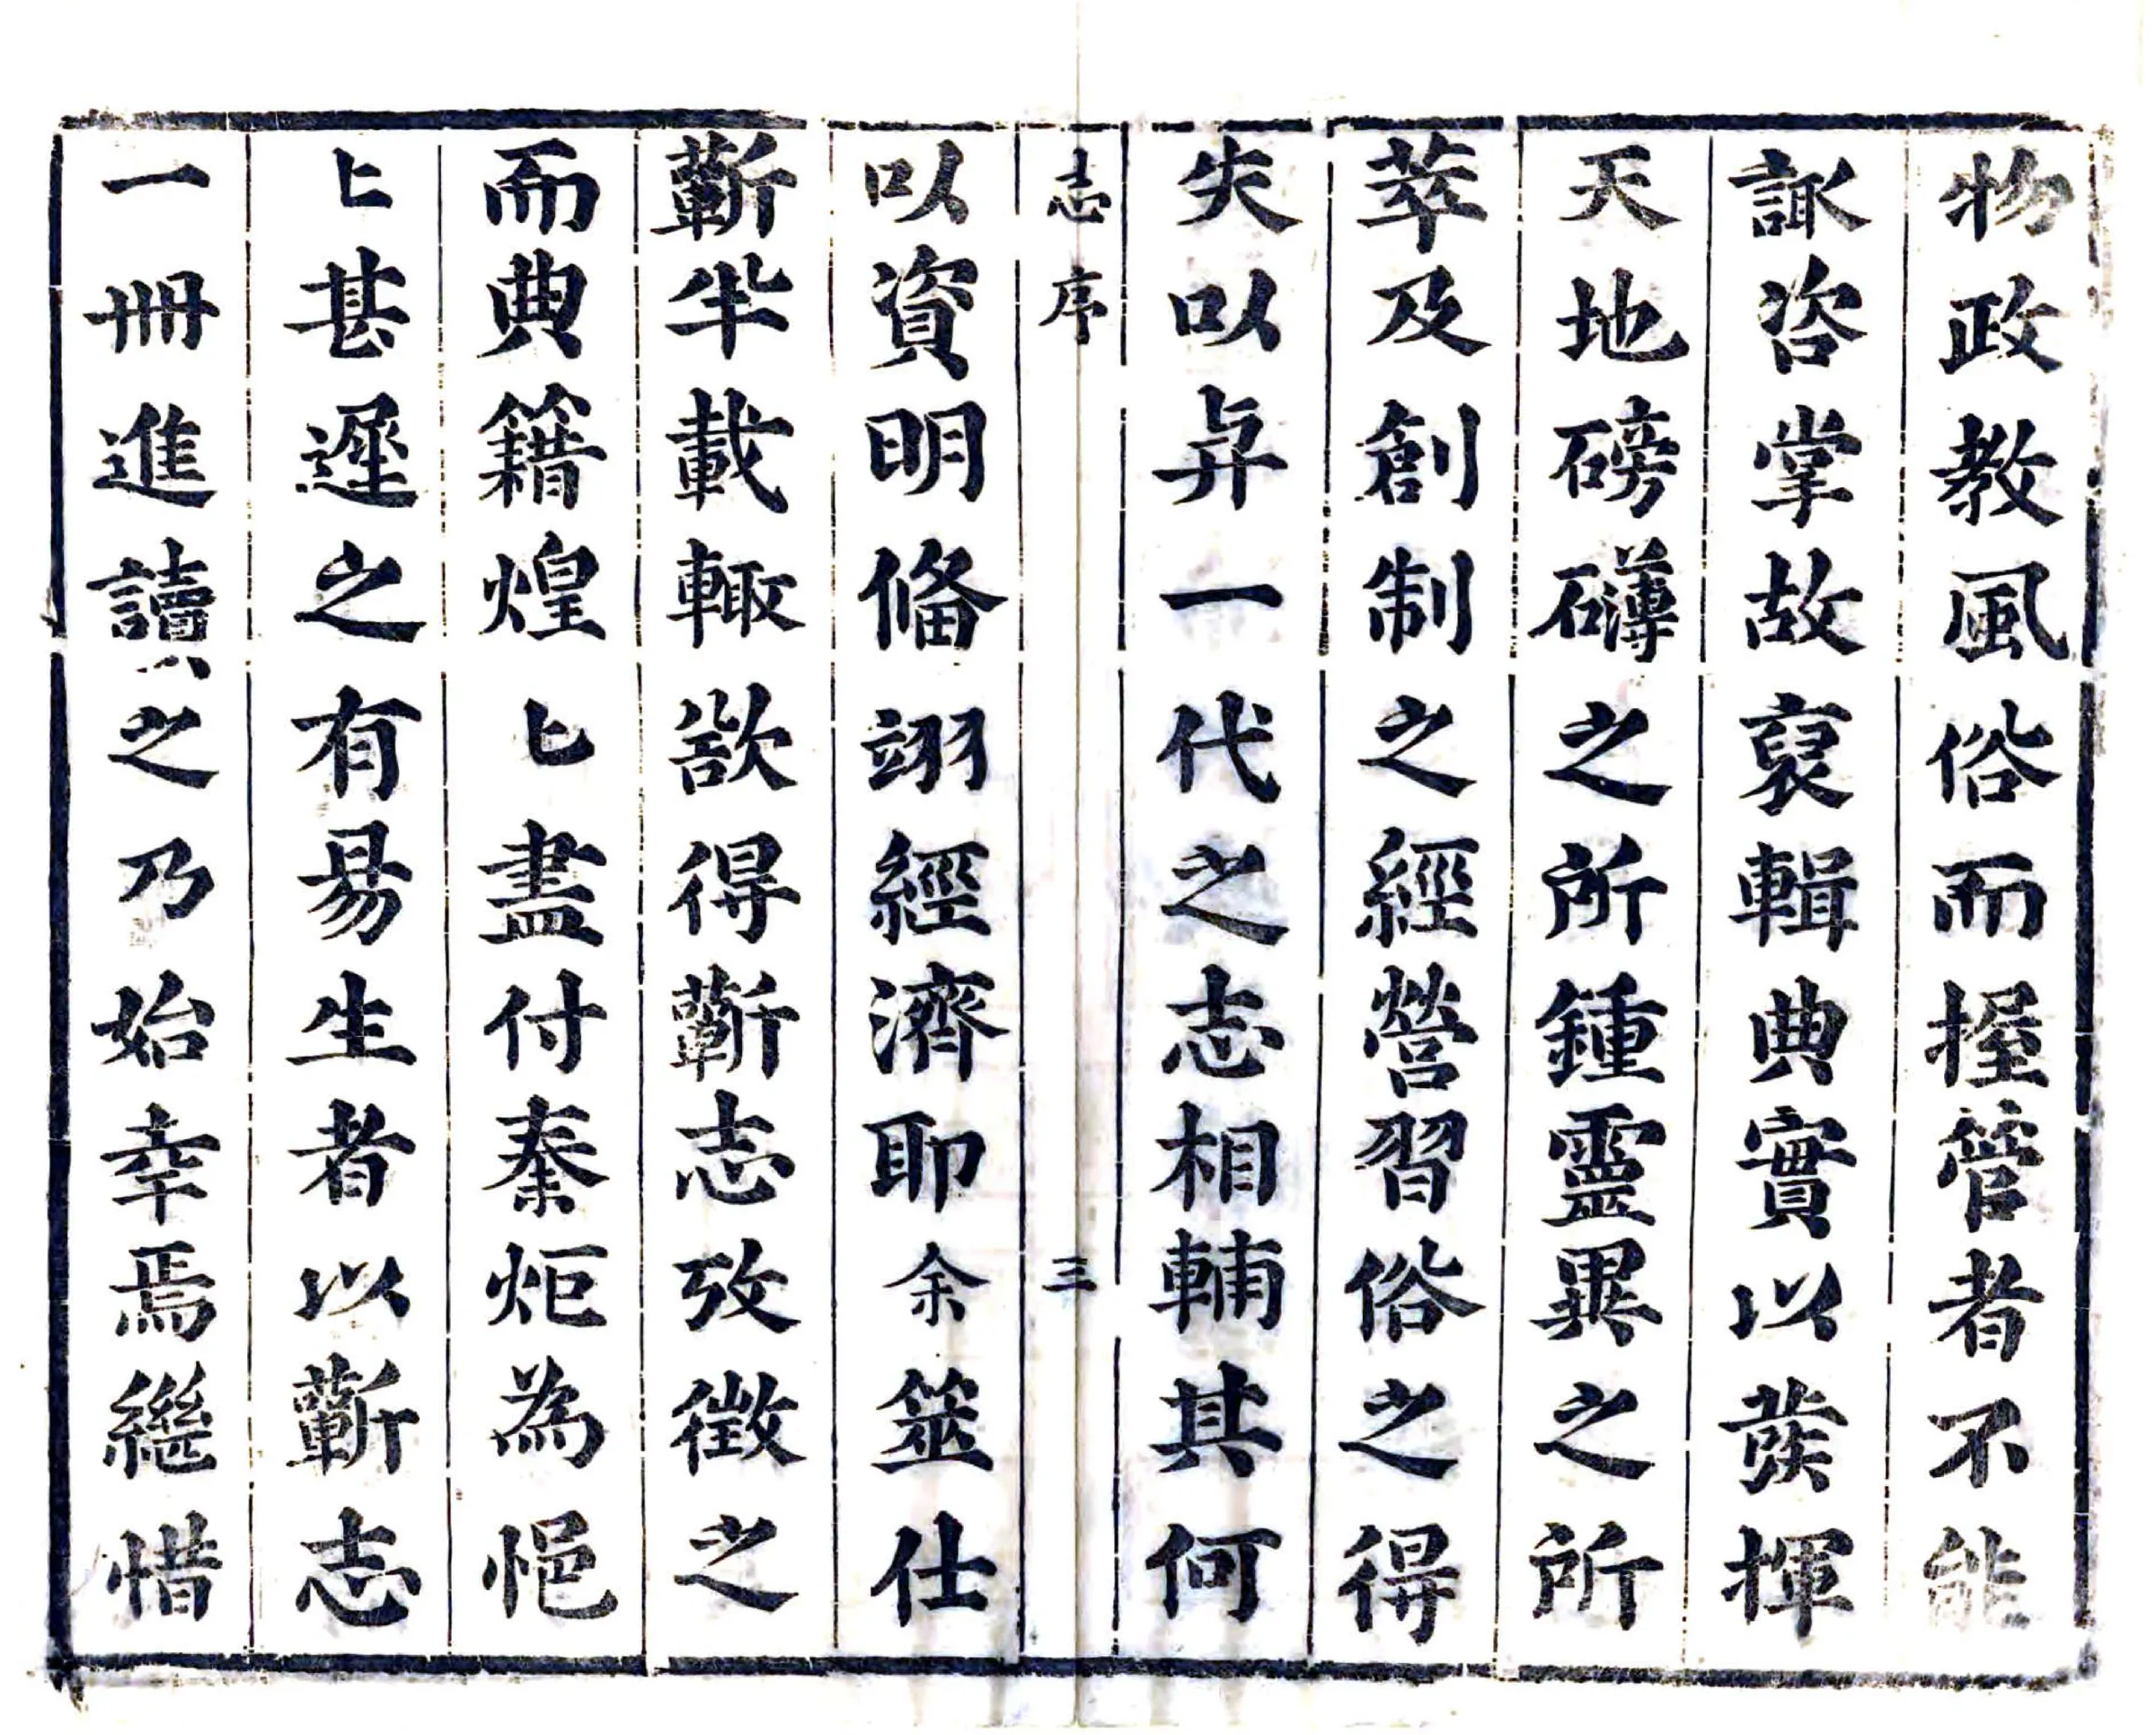 物政教風俗而握管者不能
諏咨掌故裒輯典實以發揮
天地磅礴之所鍾靈異之所
萃及創制之經營習俗之得
失以弁一代之志相輔其何
志序 三
以資明俻翊經濟耶余筮仕
蘄半載輙欲得蘄志攷徵之
而典籍煌〻盡付秦炬為悒
〻甚遲之有昜生者以蘄志
一冊進讀之乃始幸焉繼惜